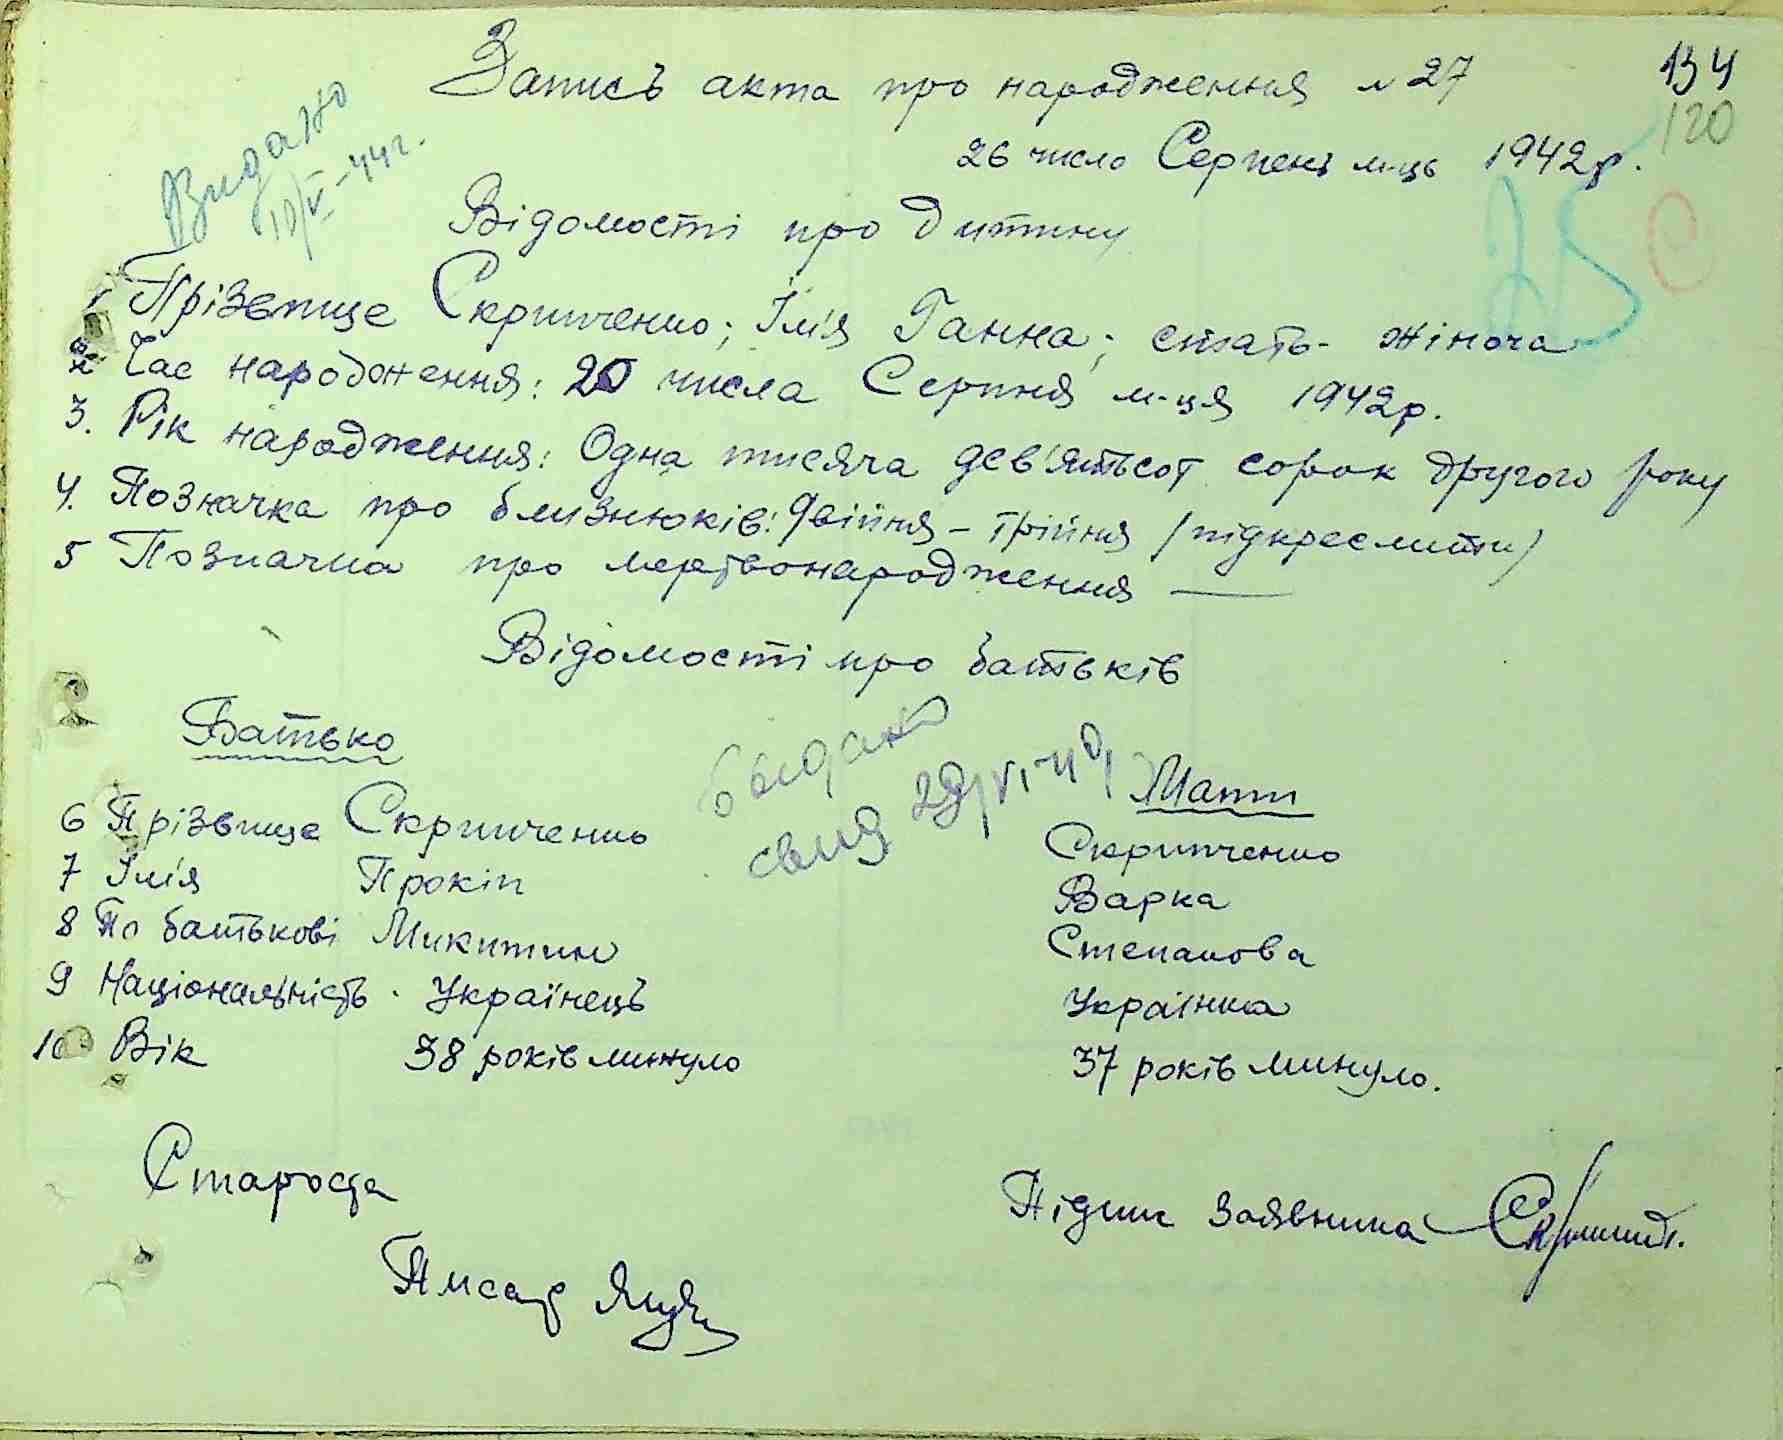 134
Записъ акта про народження № 27
120
26 число Серпень м-ць 1942р.
Видано
10/V-44г.
Відомості про дитину
25
1 Прізвище Скрипченко; Імія Ганна; стать- жіноча
2 Час народження: 20 числа Серпня м-ця 1942р.
3. Рік народження: Одна тисяча дев'ятьсот сорок другого року
4. Позначка про близнюків: Двійня - трійня /підкреслити/
5 Позначка про мертвонародження —
Відомості про батьків
Батько
Мати
выдано
6 Прізвище Скрипченко
Скрипченко
7 Імія Прокіп
Варка
8 По батькові Микитин
Степанова
9 Національність. Українець
Українка
10 Вік 38 років минуло
37 років минуло.
Староста
Підпис заявника
Писар